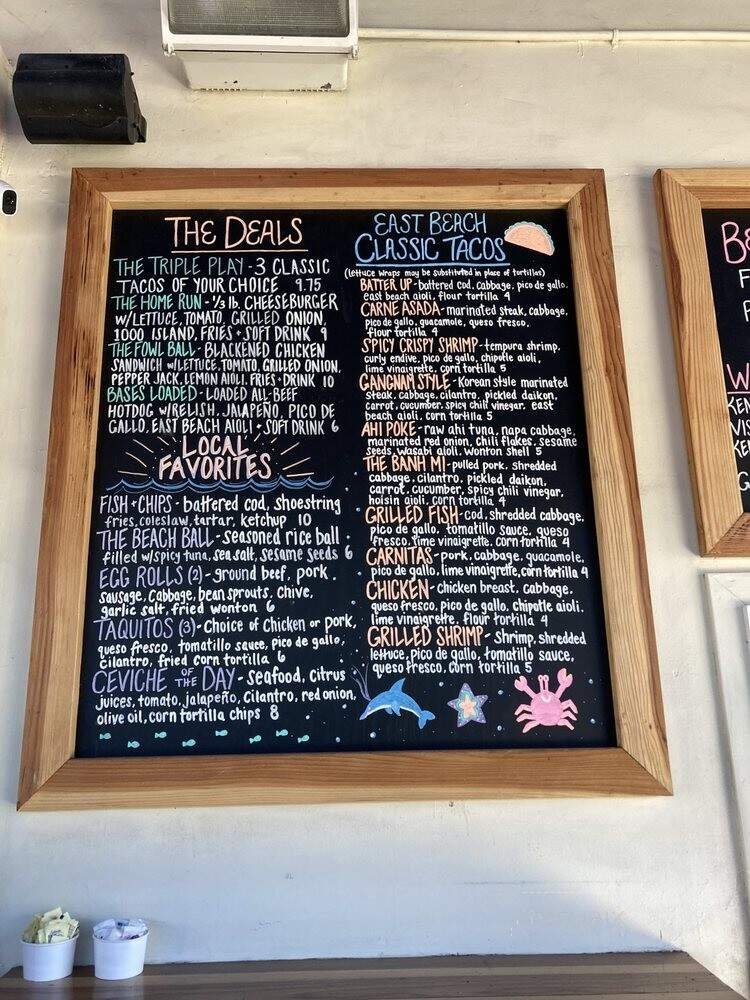 THE DEALS
THE TRIPLE PLAY - 3 CLASSIC
TACOS OF YOUR CHOICE 9.75
THE HOME RUN - 1/3 lb. CHEESEBURGER
W/LETTUCE, TOMATO, GRILLED ONION,
1000 ISLAND, FRIES + SOFT DRINK 9
THE FOWL BALL - BLACKENED CHICKEN
SANDWICH W/LETTUCE, TOMATO, GRILLED ONION,
PEPPER JACK, LEMON AIOLI, FRIES + DRINK 10
BASES LOADED - LOADED ALL-BEEF
HOTDOG W/RELISH, JALAPEÑO, PICO DE
GALLO, EAST BEACH AIOLI + SOFT DRINK 6
LOCAL
FAVORITES
FISH + CHIPS - battered cod, shoestring
fries, coleslaw, tartar, ketchup 10
THE BEACH BALL - seasoned rice ball
filled w/spicy tuna, sea salt, sesame seeds 6
EGG ROLLS (2) - ground beef, pork,
sausage, cabbage, bean sprouts, chive,
garlic salt, fried wonton 6
TAQUITOS (3) - Choice of Chicken or pork,
queso fresco, tomatillo sauce, pico de gallo,
cilantro, fried corn tortilla 6
CEVICHE OF THE DAY - seafood, citrus
juices, tomato, jalapeño, cilantro, red onion,
olive oil, corn tortilla chips 8
EAST BEACH
CLASSIC TACOS
(lettuce wraps may be substituted in place of tortillas)
BATTER UP - battered cod, cabbage, pico de gallo,
east beach aioli, flour tortilla 4
CARNE ASADA - marinated steak, cabbage,
pico de gallo, guacamole, queso fresco,
flour tortilla 4
SPICY CRISPY SHRIMP - tempura shrimp,
curly endive, pico de gallo, chipotle aioli,
lime vinaigrette, corn tortilla 5
GANGNAM STYLE - Korean style marinated
steak, cabbage, cilantro, pickled daikon,
carrot, cucumber, spicy chili vinegar, east
beach aioli, corn tortilla 5
AHI POKE - raw ahi tuna, napa cabbage,
marinated red onion, chili flakes, sesame
seeds, wasabi aioli, wonton shell 5
THE BANH MI - pulled pork, shredded
cabbage, cilantro, pickled daikon,
carrot, cucumber, spicy chili vinegar,
hoisin aioli, corn tortilla 4
GRILLED FISH - cod, shredded cabbage,
pico de gallo, tomatillo sauce, queso
fresco, lime vinaigrette, corn tortilla 4
CARNITAS - pork, cabbage, guacamole,
pico de gallo, lime vinaigrette, corn tortilla 4
CHICKEN - chicken breast, cabbage,
queso fresco, pico de gallo, chipotle aioli,
lime vinaigrette, flour tortilla 4
GRILLED SHRIMP - shrimp, shredded
lettuce, pico de gallo, tomatillo sauce,
queso fresco, corn tortilla 5